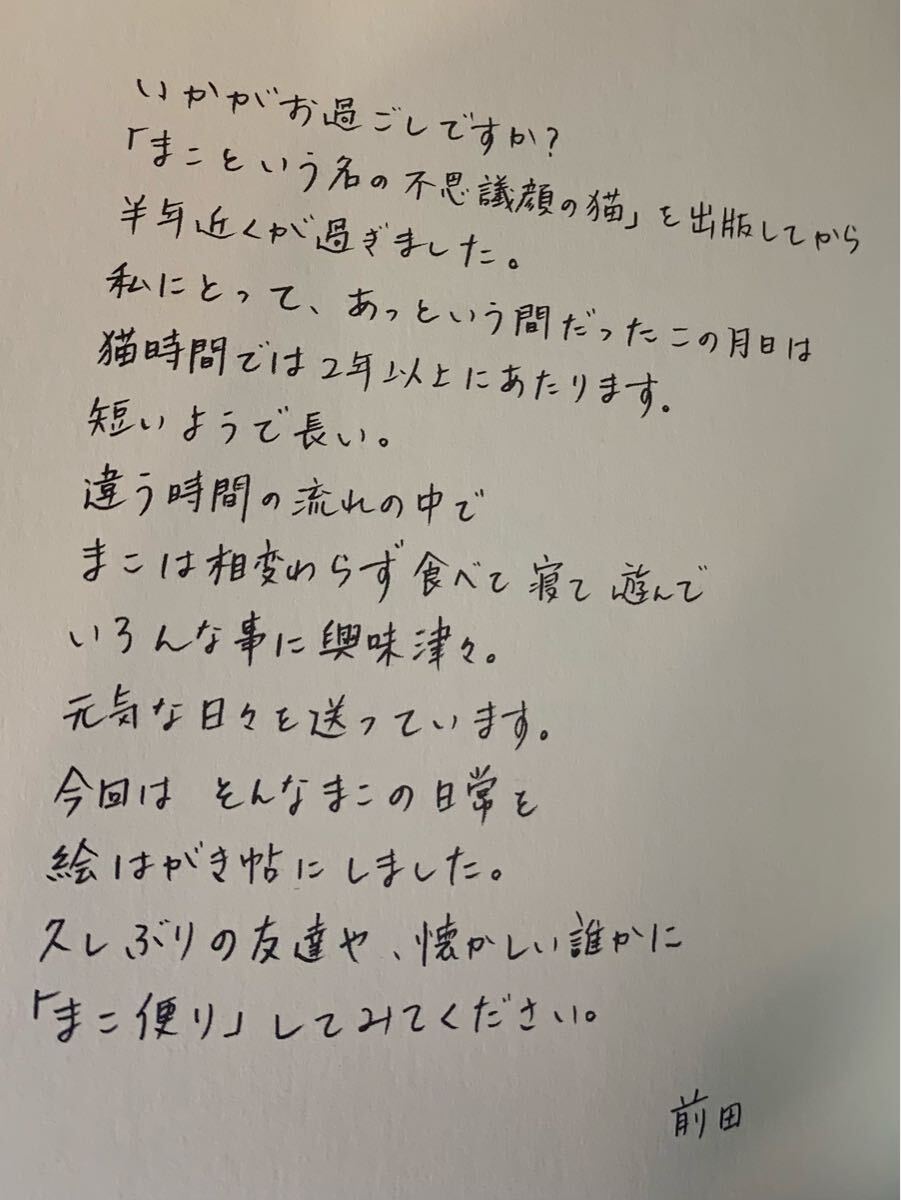 いかがお過ごしですか?
「まこという名の不思議顔の猫」を出版してから
半年近くが過ぎました。
私にとって、あっという間だったこの月日は
猫時間では2年以上にあたります。
短いようで長い。
違う時間の流れの中で
まこは相変わらず食べて寝て遊んで
いろんな事に興味津々。
元気な日々を送っています。
今回は そんなまこの日常を
絵はがき帖にしました。
久しぶりの友達や、懐かしい誰かに
「まこ便り」してみてください。
前田